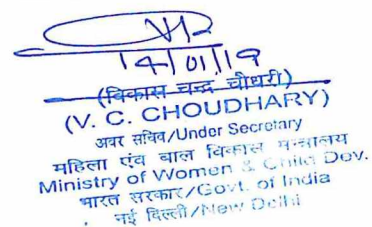 14/01/19
(विकास चन्द्र चौधरी)
(V. C. CHOUDHARY)
अवर सचिव/Under Secretary
महिला एंव बाल विकास मन्त्रालय
Ministry of Women & Child Dev.
भारत सरकार/Govt. of India
नई दिल्ली/New Delhi